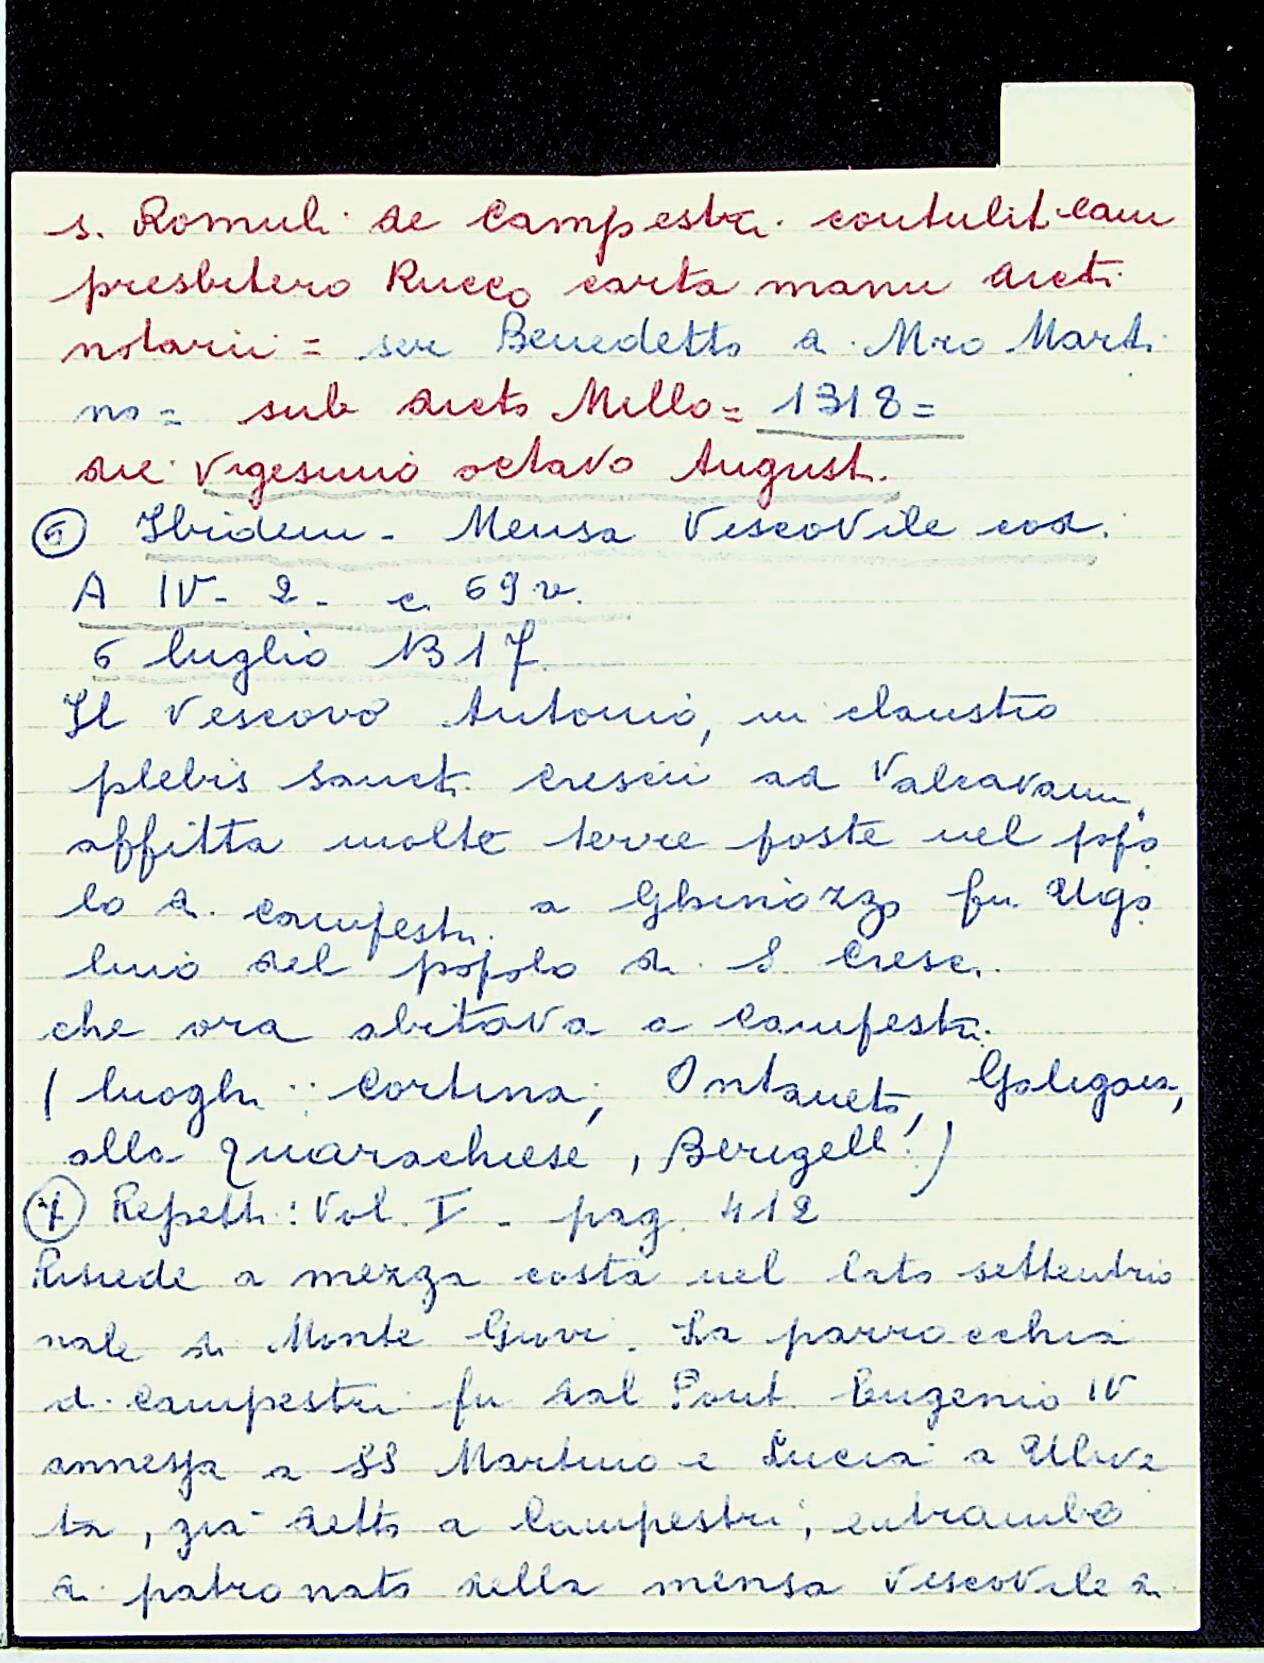 s. Romuli de Campestri contulit eam
presbitero Rucco carta manu dicti
notarii = ser Benedetto d. Mro Marti
no = sub dicto Mille = 1318 =
die vigesimo octavo Augusti.
⑥ Ibidem - Mensa Vescovile cod.
A IV - 2 - c. 69 v.
6 luglio 1317
Il Vescovo Antonio, in claustro
plebis Sancti Crescii ad Valcavam,
affitta molte terre poste nel popo
lo di Campestri a Ghinozzo fu Ugo
lino del popolo di S. Cresci
che ora abitava a Campestri.
(luoghi: Cortina, Ontaneto, Galigaia,
alla Quarachiese, Berigelli)
⑦ Repetti: Vol. I - pag. 412
Risiede a mezza costa nel lato settentrio
nale di Monte Giovi. La parrocchia
di Campestri fu dal Pont. Eugenio IV
annessa a SS Martino e Lucia a Ulive
ta, già detto a Campestri, entrambe
di patronato della mensa vescovile di